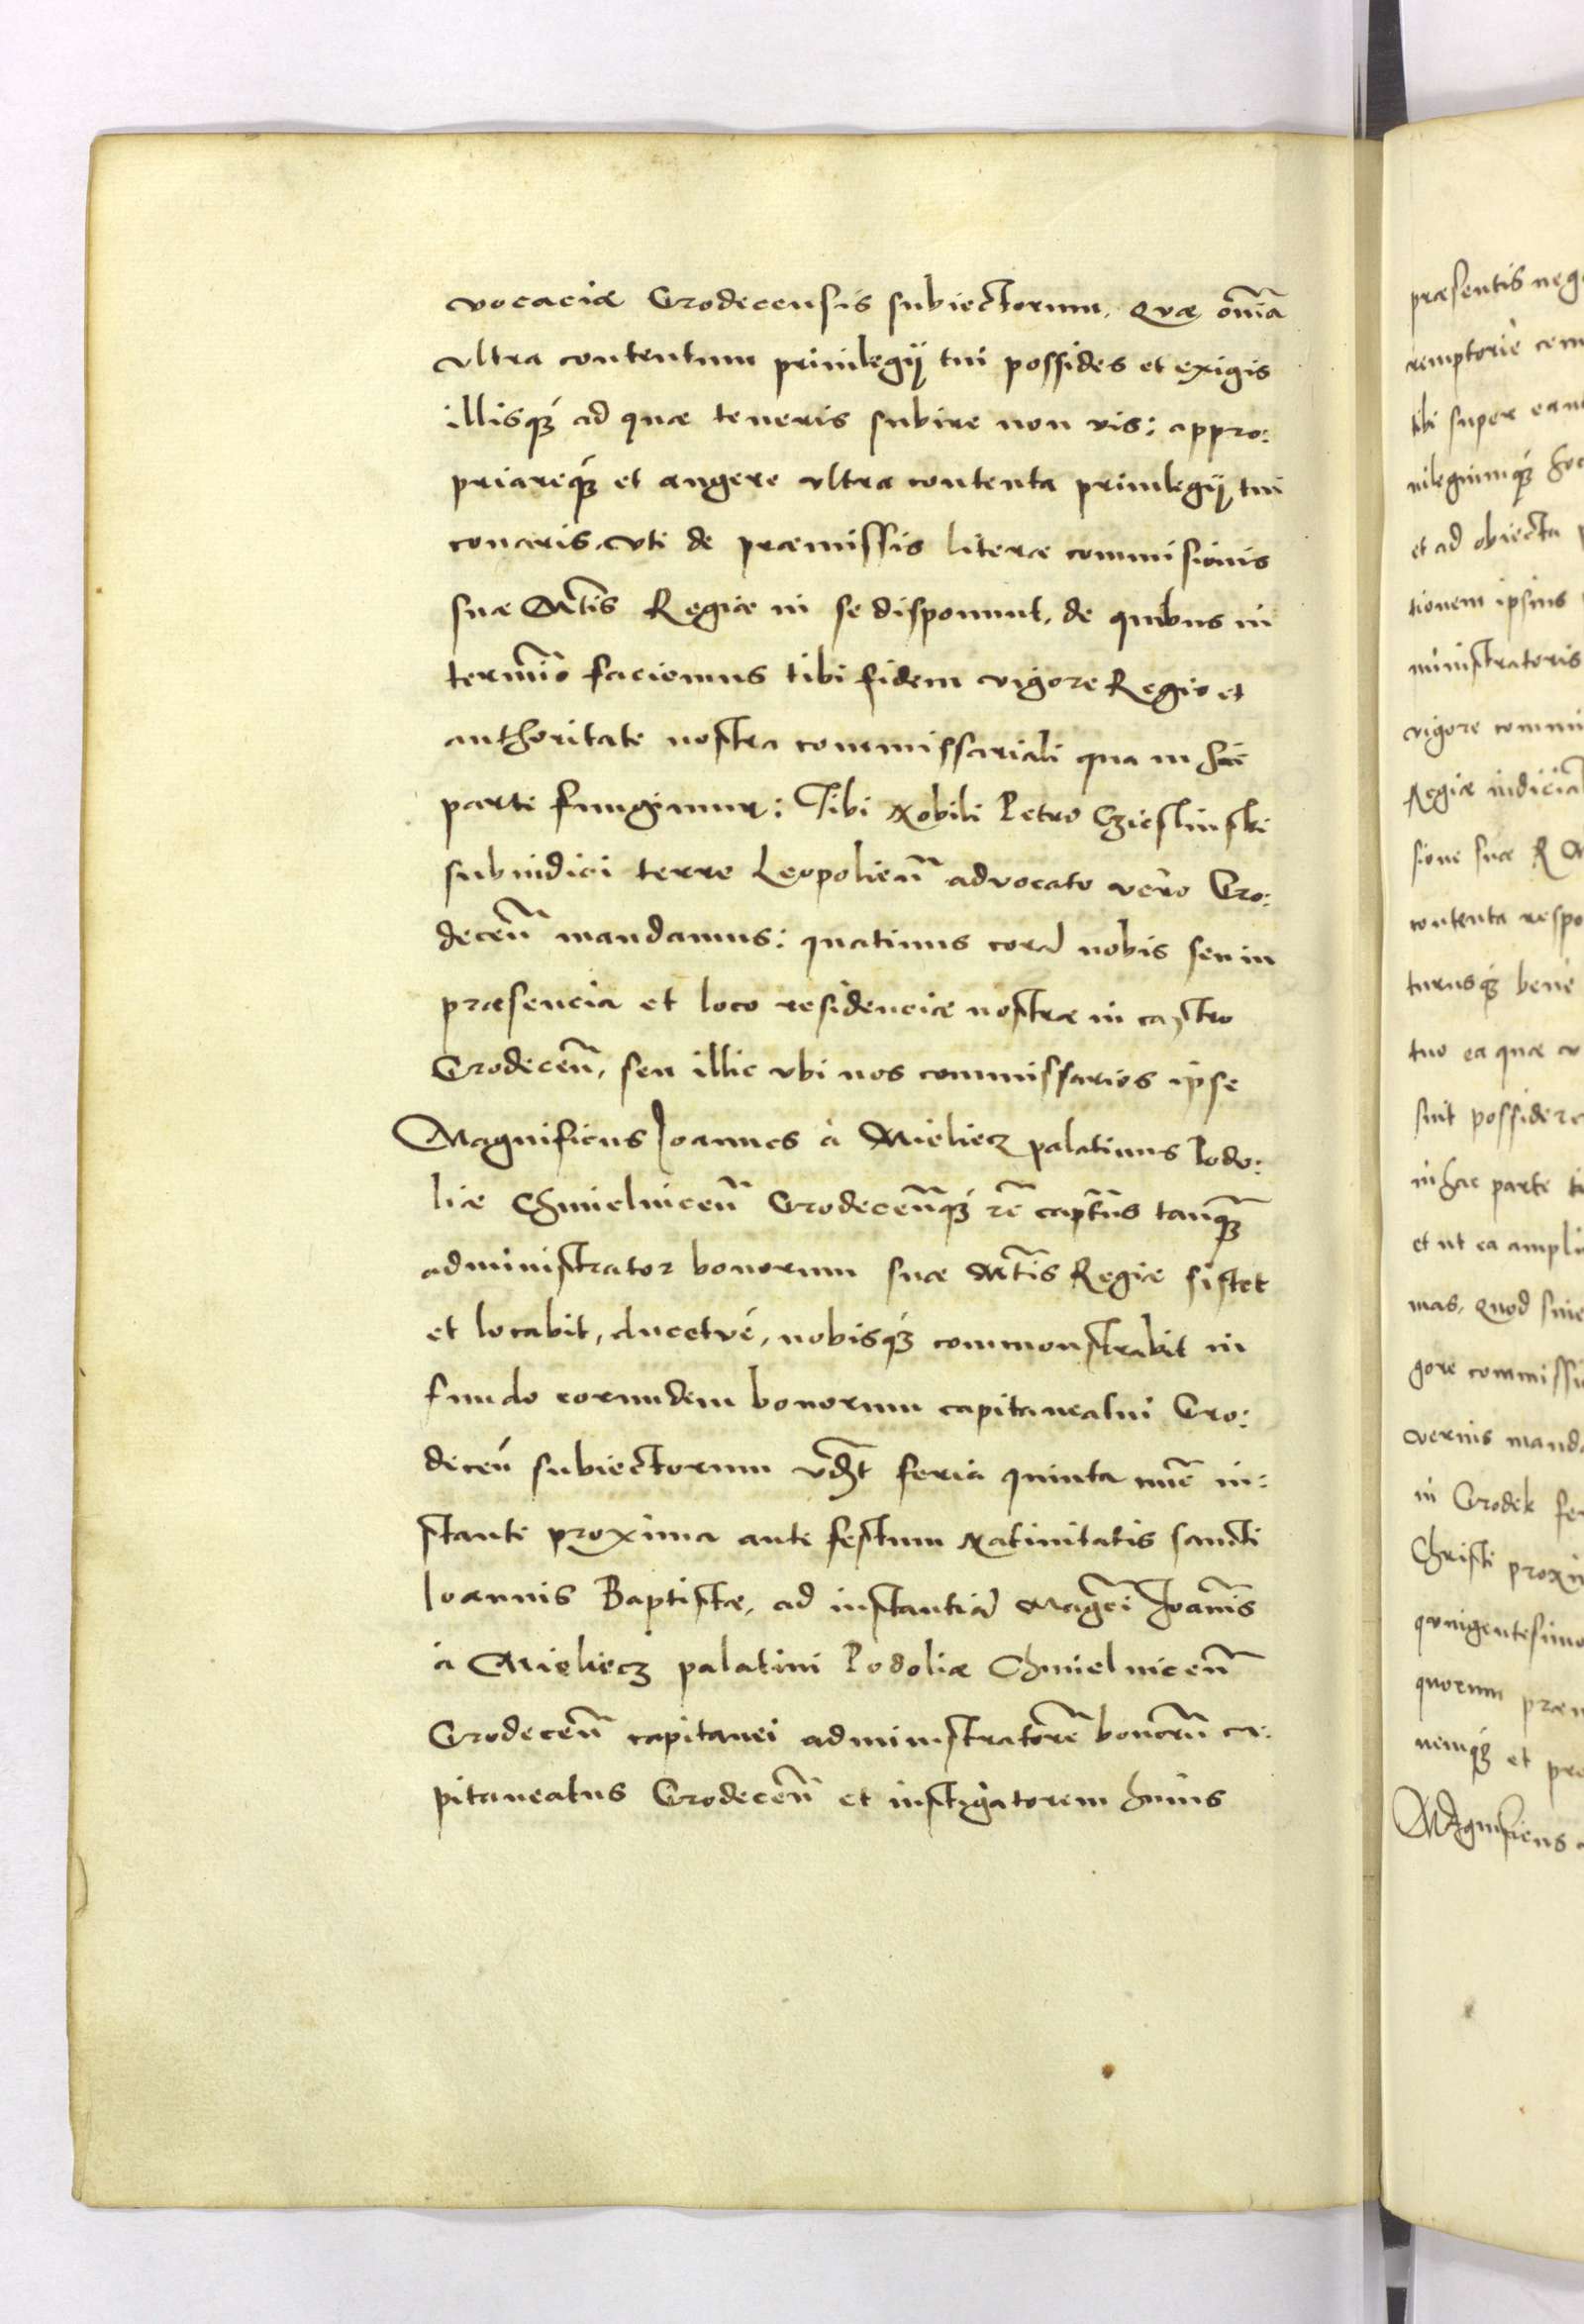 vocaciæ Grodecensis subiectorum, Quæ om̃ia
vltra contentum priuilegij tui possides et exigis
illisq₃ ad quæ teneris subire non vis: appro:
priareq₃ et angere vltra contenta priuilegij tui
conaris, vti de præmissis literæ commisionis
suæ Mtis Regiæ in se disponunt, de quibus in
term̃io faciemus tibi fidem vigore Regio et
authoritate nostra commissariali qua in hac
parte fungimur: Tibi Nobili Petro Czieslinski
subiudici terre Leopolieñ advocato vero Gro:
deceñ mandamus: quatinus corã nobis seu in
præsencia et loco residenciæ nostræ in castro
Grodeceñ, seu illic vbi nos commissarios ipse
Magnificus Ioannes à Mieliecz palatinus Podo:
liæ Chmielniceñ Grodeceñq₃ rẽ captñs tanq₃
administrator bonorum suæ Mtis Regiæ sistet
et locabit, ducetvé, nobisq₃ commonstrabit in
fundo eorundem bonorum capitaneatui Gro:
deceñ subiectorum vdꝫt feria quinta nũc in:
stante proxima ante festum Natiuitatis sancti
Ioannis Baptistæ, ad instantiã Magc̃i Ioañis
à Mieliecz palatini Podoliæ Chmielniceñ
Grodeceñ capitanei administratorẽ bonorũ ca:
pitaneatus Grodeceñ et instigatorem huius
præsentis neg
remptorie
tibi super
et ad obiecta
tionem ipsius
ministratoris
vigore commi
Regiæ
sione suæ R M
contenta respo
turusq₃ bene
tuo ea quæ v
sint possidere
in hac parte ti
et ut ea ampli
mas, Quod siue
gore commissi
mand
in Grodek fer
Christi proxi
quingentesimo
quorum præm
nemq₃ et pre
Magnificus